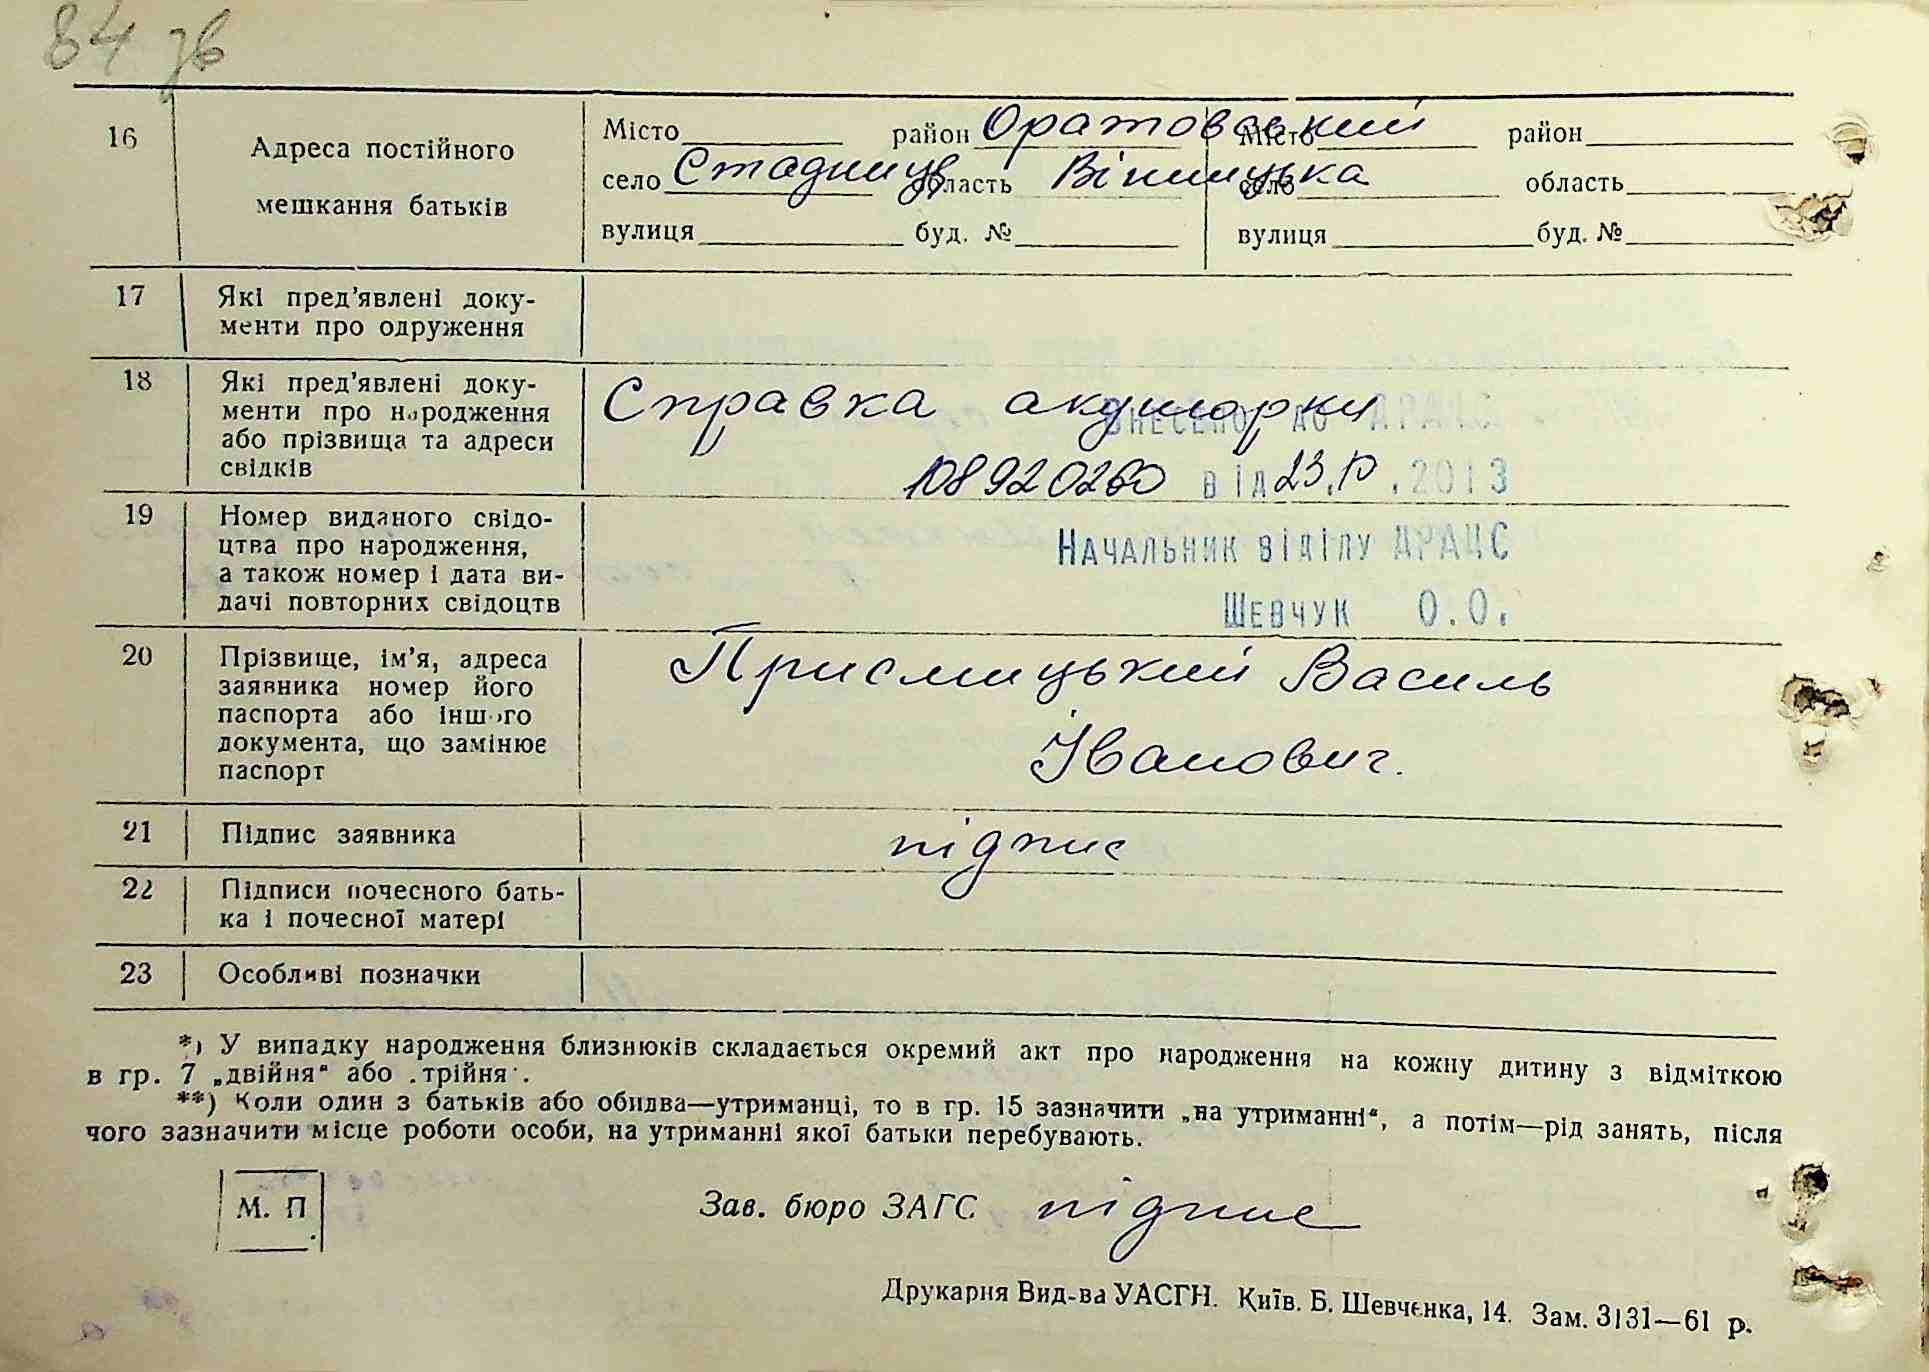 84 зв
16 Адреса постійного мешкання батьків
Місто район Оратовський Місто район
село Стадниця область Вінницька село область
вулиця буд. № вулиця буд. №
17 Які пред'явлені доку-
менти про одруження
18 Які пред'явлені доку-
менти про народження
або прізвища та адреси
свідків
Справка акушорки
Внесено до ДРАЦС
108920260 від 23.10.2013
19 Номер виданого свідо-
цтва про народження,
а також номер і дата ви-
дачі повторних свідоцтв
Начальник відділу ДРАЦС
Шевчук О.О.
20 Прізвище, ім'я, адреса
заявника номер його
паспорта або іншого
документа, що замінює
паспорт
Василь
Іванович.
21 Підпис заявника підпис
22 Підписи почесного бать-
ка і почесної матері
23 Особливі позначки
*) У випадку народження близнюків складається окремий акт про народження на кожну дитину з відміткою
в гр. 7 „двійня“ або „трійня“.
**) Коли один з батьків або обидва—утриманці, то в гр. 15 зазначити „на утриманні“, а потім—рід занять, після
чого зазначити місце роботи особи, на утриманні якої батьки перебувають.
М. П.
Зав. бюро ЗАГС підпис
Друкарня Вид-ва УАСГН. Київ. Б. Шевченка, 14. Зам. 3131—61 р.